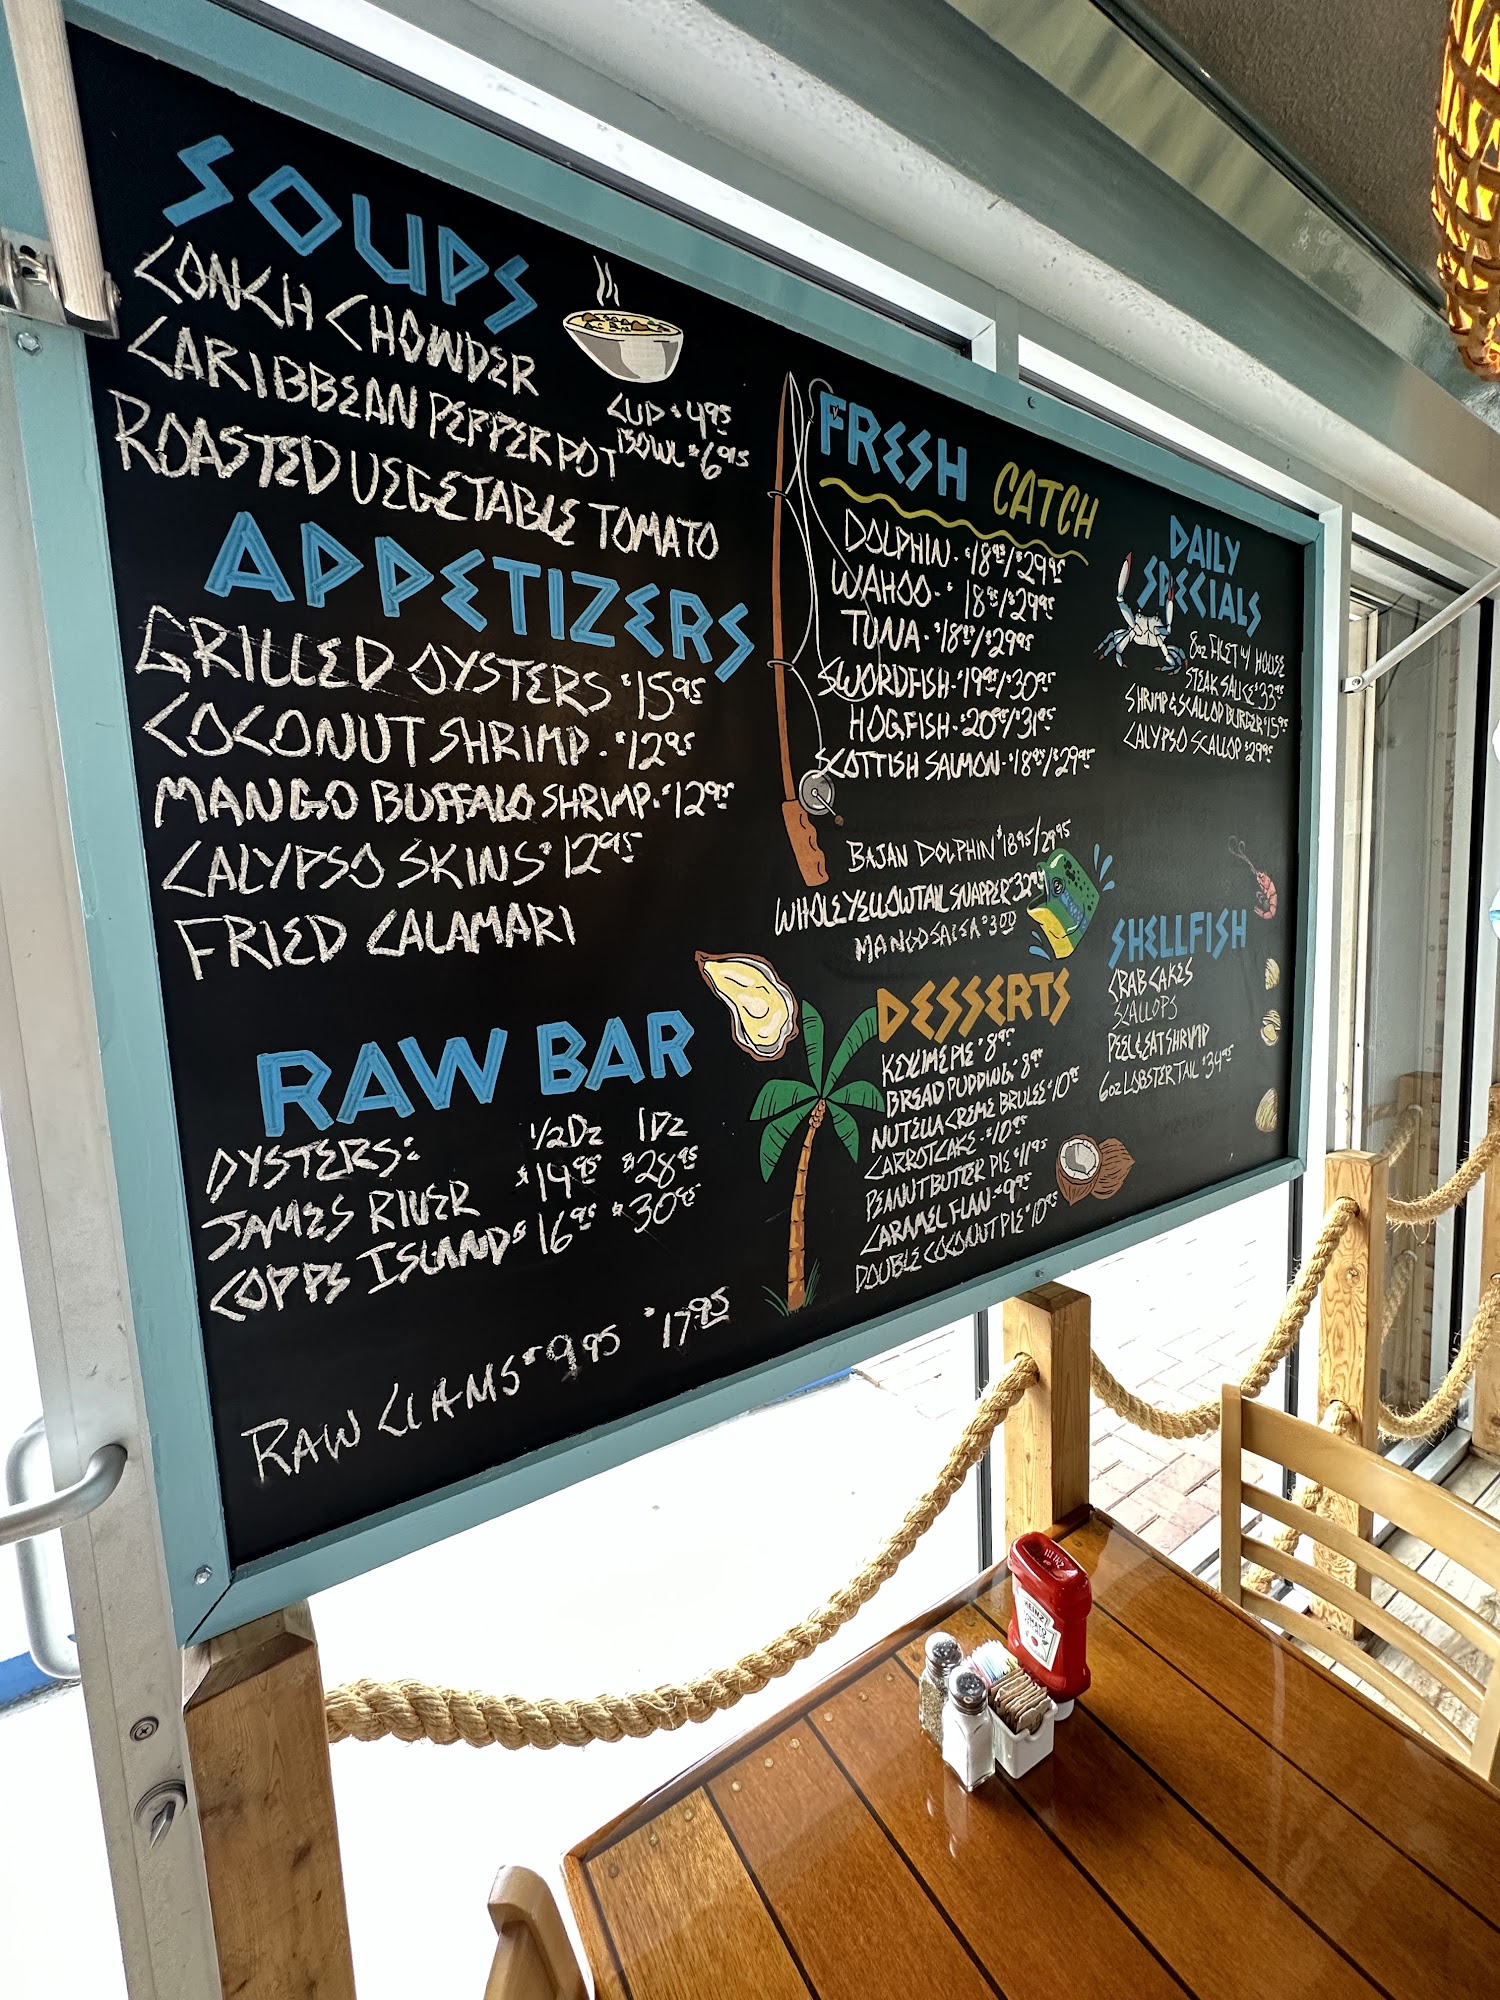 SOUPS
CONCH CHOWDER
CARIBBEAN PEPPER POT
ROASTED VEGETABLE TOMATO
CUP $4.95
BOWL $6.95
APPETIZERS
GRILLED OYSTERS $15.95
COCONUT SHRIMP - $12.95
MANGO BUFFALO SHRIMP - $12.95
CALYPSO SKINS $12.95
FRIED CALAMARI
RAW BAR
OYSTERS: 1/2 Dz 1 Dz
JAMES RIVER $14.95 $28.95
COPPS ISLAND $16.95 $30.95
RAW CLAMS $9.95 $17.95
FRESH CATCH
DOLPHIN - $18.95/$29.95
WAHOO - $18.95/$29.95
TUNA - $18.95/$29.95
SWORDFISH - $19.95/$30.95
HOGFISH - $20.95/$31.95
SCOTTISH SALMON - $18.95/$29.95
BAJAN DOLPHIN $18.95/29.95
WHOLE YELLOWTAIL SNAPPER
MANGO SALSA $3.00
DESSERTS
KEY LIME PIE $8.95
BREAD PUDDING $8.95
NUTELLA CREME BRULEE $10.95
CARROT CAKE - $10.95
PEANUT BUTTER PIE $11.95
CARAMEL FLAN $9.95
DOUBLE COCONUT PIE $10.95
DAILY
SPECIALS
8oz FILET W/ HOUSE
STEAK SAUCE $33.95
SHRIMP & SCALLOP BURGER $15.95
CALYPSO SCALLOP $29.95
SHELLFISH
CRAB CAKES
SCALLOPS
PEEL & EAT SHRIMP
6oz LOBSTER TAIL $34.95
HEINZ
TOMATO